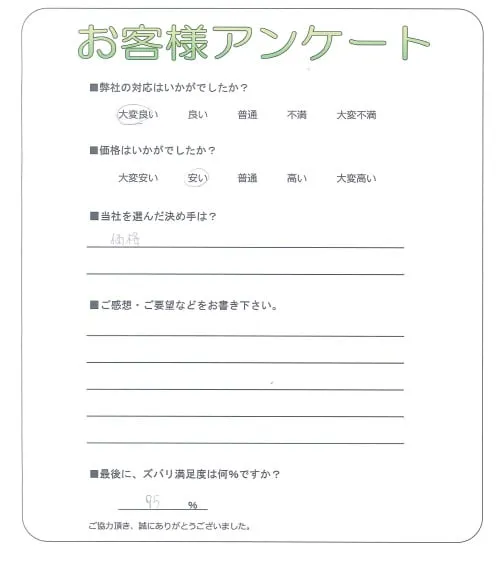 お客様アンケート
■弊社の対応はいかがでしたか？
大変良い 良い 普通 不満 大変不満
■価格はいかがでしたか？
大変安い 安い 普通 高い 大変高い
■当社を選んだ決め手は？
価格
■ご感想・ご要望などをお書き下さい。
■最後に、ズバリ満足度は何%ですか？
95 %
ご協力頂き、誠にありがとうございました。